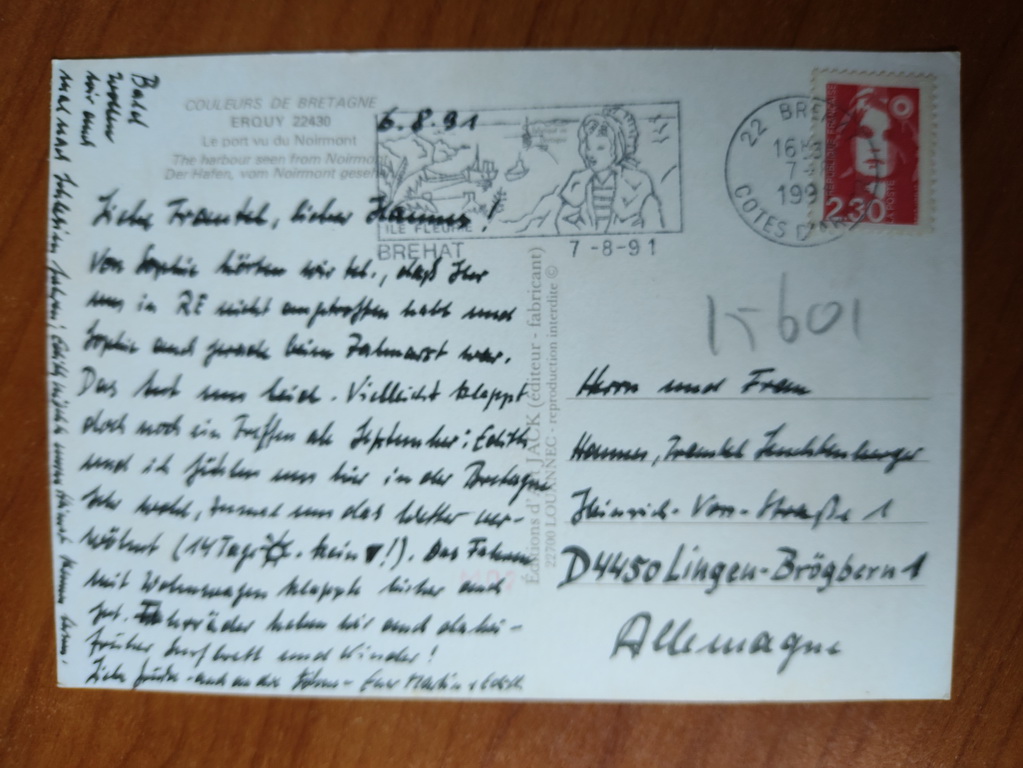 COULEURS DE BRETAGNE
ERQUY 22430
Le port vu du Noirmont
The harbour seen from Noirmont
Der Hafen, vom Noirmont gesehen
6.8.91
ILE FLEURIE
BREHAT
7-8-91
22 BRE
16H
7-
199
COTES D'AR
LA POSTE
2.30
Liebe Trautel, lieber Hannes!
Von Sophie hörten wir tel., daß Ihr
uns in RE nicht angetroffen habt und
Sophie auch gerade beim Zahnarzt war.
Das tut uns leid. Vielleicht klappt
doch noch ein Treffen ab September; Edith
und ich fühlen uns hier in der Bretagne
sehr wohl, zumal uns das Wetter ver-
wöhnt (14 Tage . kein !). Das Fahren
mit Wohnwagen klappte bisher auch
gut. Fahrräder haben wir auch dabei -
früher Surfbrett und Kinder!
Liebe Grüße - auch an die Söhne - Euer Martin + Edith
Bald
wollen
wir auch
mal nach Schlesien fahren; Edith möchte meine Heimat kennen lernen.
Éditions d'Art JACK (éditeur - fabricant)
22700 LOUANNEC - reproduction interdite ©
15-601
Herrn und Frau
Hannes, Trautel Leuchtenberger
Heinrich-Von-Straße 1
D4450 Lingen-Brögbern 1
Allemagne